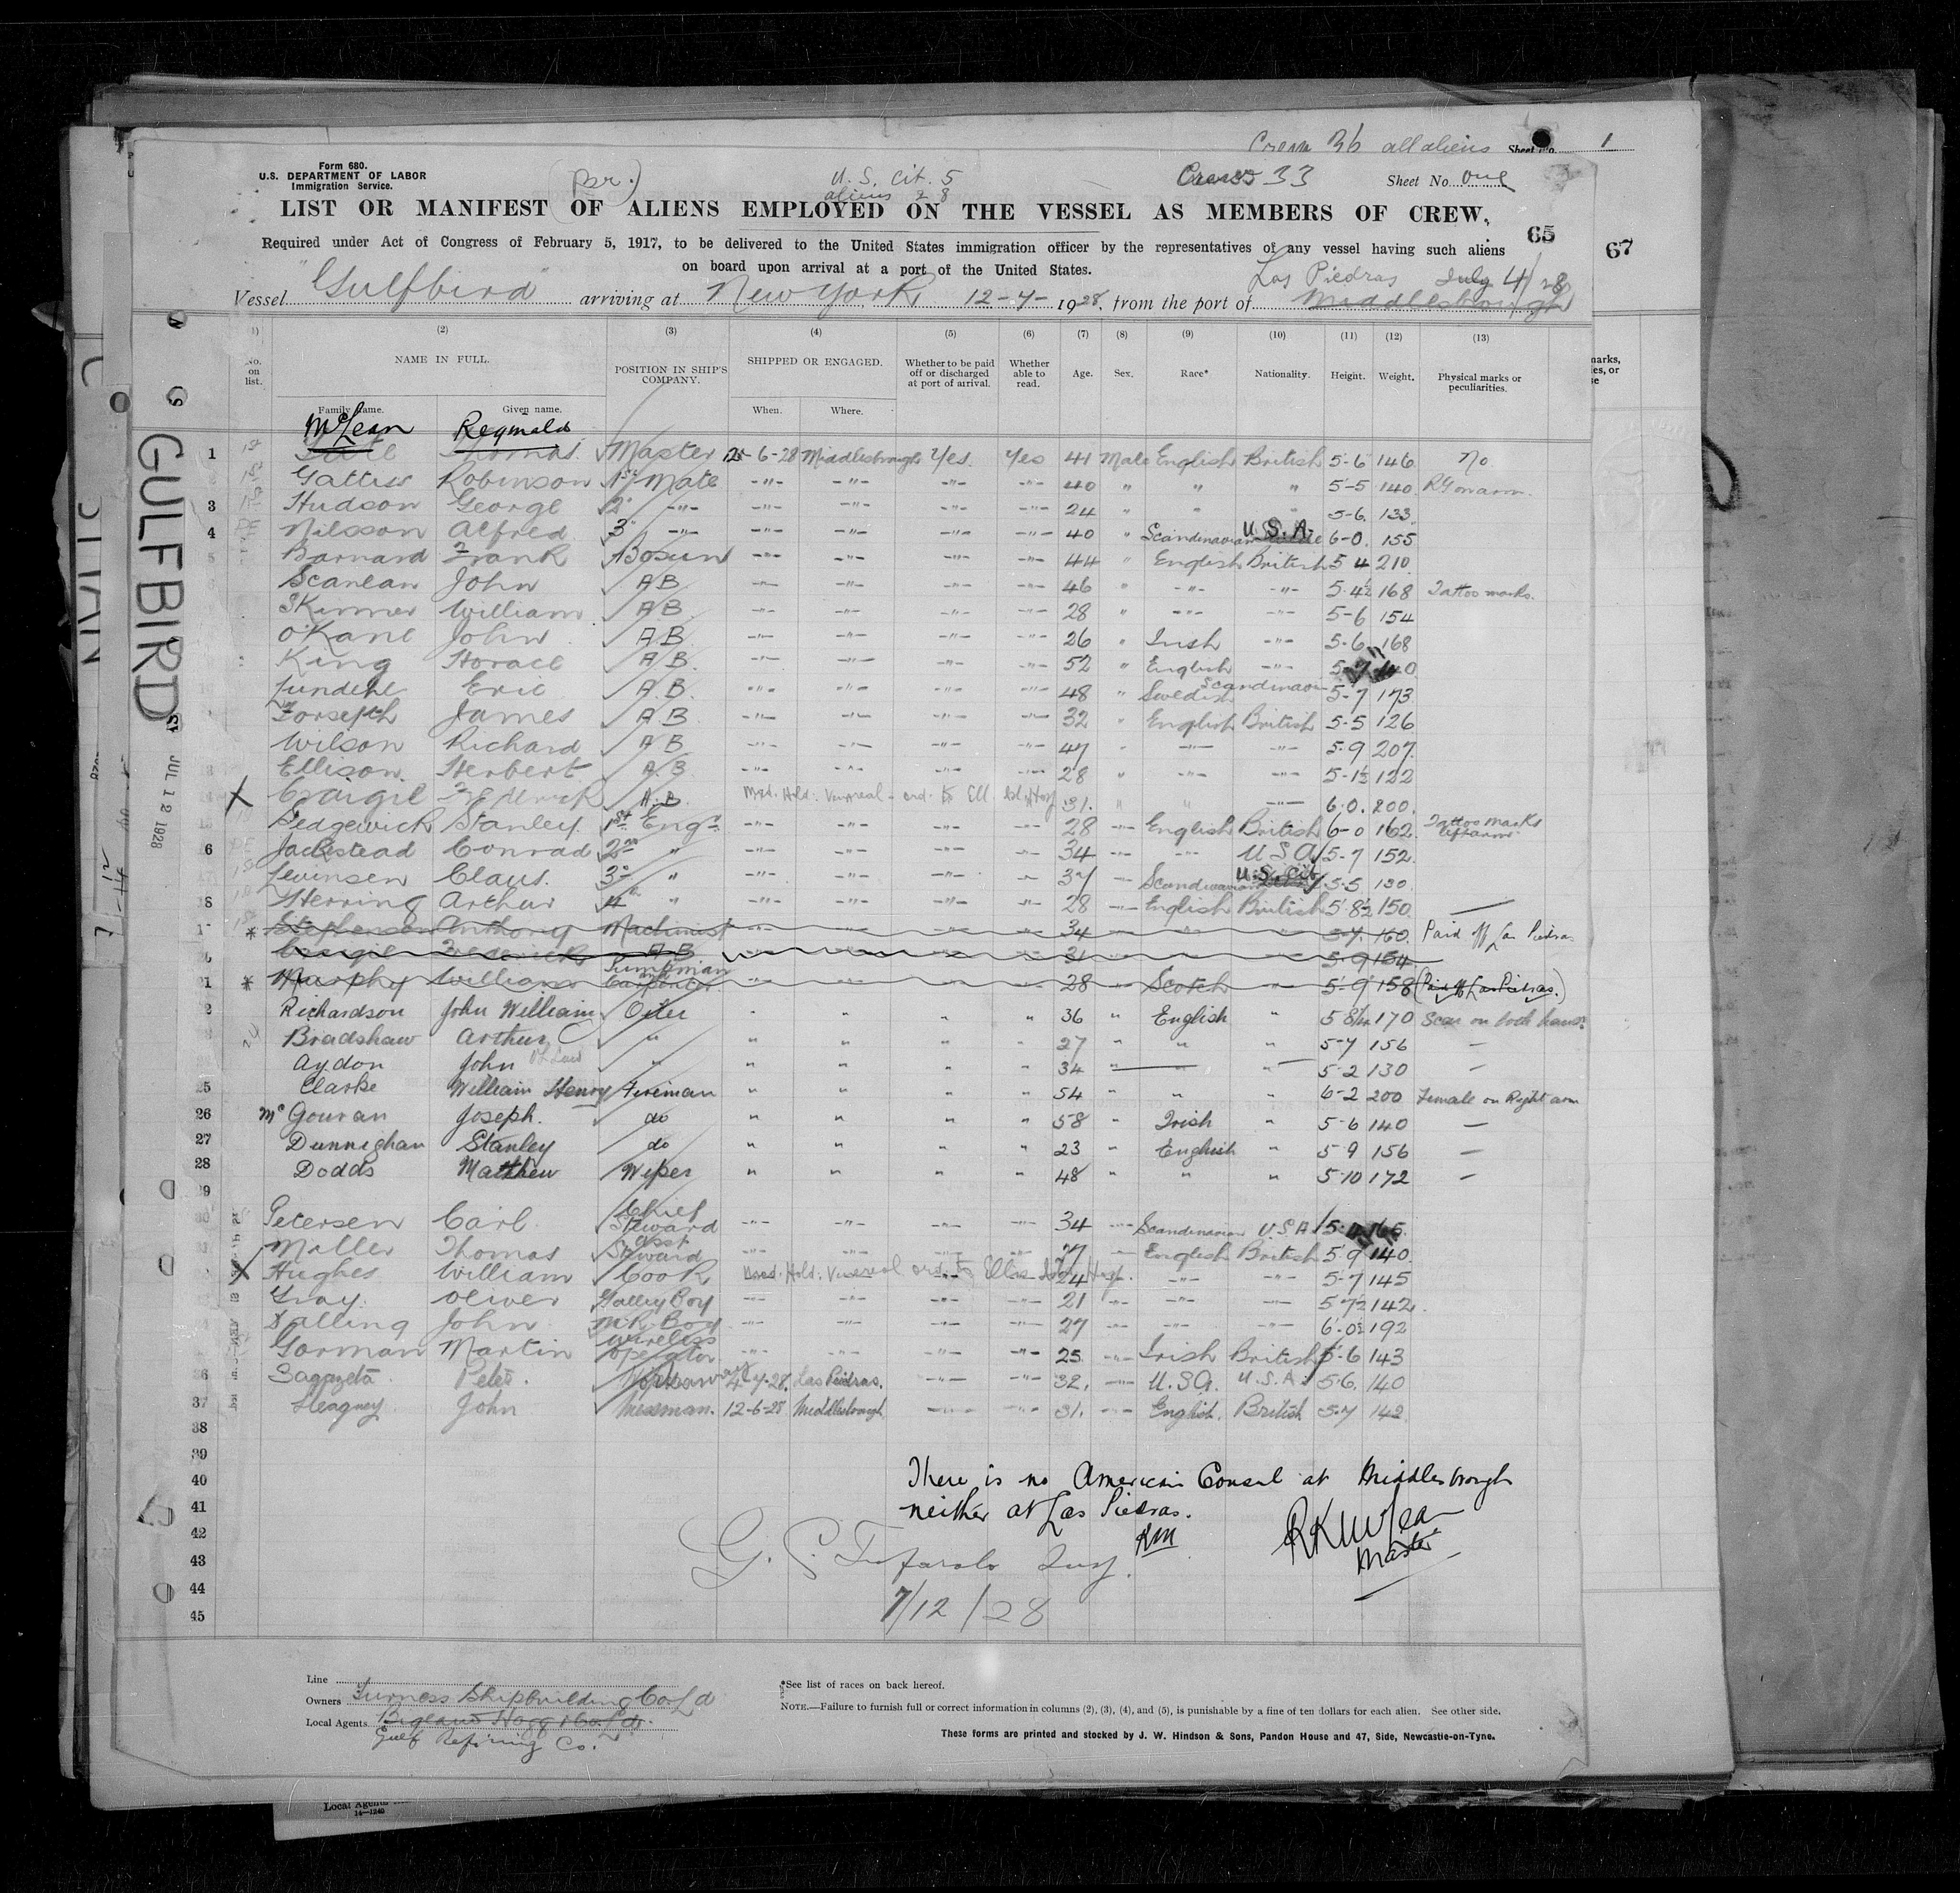 Crew 36 all aliens Sheet No. 1
Form 680.
U.S. DEPARTMENT OF LABOR
Immigration Service.
(Br.)
U.S. Cit. 5
aliens 28
Crew 33
Sheet No. one
LIST OR MANIFEST OF ALIENS EMPLOYED ON THE VESSEL AS MEMBERS OF CREW,
65
67
Required under Act of Congress of February 5, 1917, to be delivered to the United States immigration officer by the representatives of any vessel having such aliens
on board upon arrival at a port of the United States.
Las Piedras July 4/28
Vessel "Gulfbird" arriving at New York 12-7-1928, from the port of Middlesbrough
(1) (2) (3) (4) (5) (6) (7) (8) (9) (10) (11) (12) (13)
No. on list. NAME IN FULL. POSITION IN SHIP'S COMPANY. SHIPPED OR ENGAGED. Whether to be paid off or discharged at port of arrival. Whether able to read. Age. Sex. Race* Nationality. Height. Weight. Physical marks or peculiarities.
Family name. Given name. When. Where.
McLean Reginald
1 Thomas Master 6-28 Middlesbrough Yes. Yes 41 Male English British 5-6 146 No
Gattiss Robinson 1st Mate -"- -"- -"- -"- 40 " " " 5-5 140
3 Hudson George 2" -"- -"- -"- -"- -"- 24 " " " 5-6. 133
4 Nilsson Alfred 3" -"- -"- -"- -"- -"- 40 " Scandinavian U.S.A. 6-0. 155
5 Barnard Frank Bosun -"- -"- -"- -"- 44 " English British 5 4 210
Scanlan John AB -"- -"- -"- -"- 46 " -"- -"- 5-4½ 168 Tattoo marks.
Skinner William AB -"- -"- -"- -"- 28 " -"- -"- 5-6 154
O'Kane John AB -"- -"- -"- -"- 26 " Irish -"- 5-6 168
King Horace A.B. -"- -"- -"- -"- 52 " English -"-
Eric A.B. -"- -"- -"- -"- 48 " Swedish Scandinavi 5-7 173
James A.B -"- -"- -"- -"- 32 " English British 5-5 126
Wilson Richard AB -"- -"- -"- -"- 47 " -"- -"- 5-9 207
Ellison Herbert A.B -"- -"- -"- -"- 28 " -"- -"- 5-1½ 122
X Craigie A.B. Med. Hold. Venereal - ord. to Ell Isl. Hosp 31. " " -"- 6-0. 200.
Sedgewick Stanley 1st Engr. -"- -"- -"- -"- 28 -"- English British 6-0 162 Tattoo marks left arm
6 Conrad 2nd " -"- -"- -"- -"- 34 -"- -"- U S A 5-7 152
Claus. 3" " -"- -"- -"- -"- 37 -"- Scandinavian U.S. Cit 5-5 130
18 Herring Arthur 4" " -"- -"- -"- -"- 28 -"- English British 5 8½ 150
* Stephenson Anthony Machinist 34 5-7. 160. Paid off Las Piedras
Craigie Frederick AB 31 5-9 154
* 21 Murphy William Pumpman and Carpenter 28 Scotch 5-9 158 (Paid off Las Piedras.)
2 Richardson John William Oiler " " " " 36 " English " 5 8½ 170 Scar on both hands
Bradshaw Arthur " " " " " 27 " " " 5-7 156 -
Aydon John " " " " " 34 " " 5-2 130 -
25 Clarke William Henry Fireman " " " " 54 " " " 6-2 200 Female on Right arm
26 McGouran Joseph. do " " " " 58 " Irish " 5-6 140 -
27 Dunnighan Stanley do " " " " 23 " English " 5 9 156 -
28 Dodds Matthew Wiper " " " " 48 " " " 5-10 172 -
29
30 Petersen Carl Chief Steward -"- -"- -"- -"- 34 -"- Scandinavian U.S.A
31 Miller Thomas Asst Steward -"- -"- -"- -"- -"- English British 5 9 140
X Hughes William Cook Med. Hold. Venereal ord. to Ellis Isl. Hosp. 24 -"- -"- 5-7 145
Gray Oliver Galley Boy -"- -"- -"- -"- 21 -"- -"- -"- 5 7½ 142
Salling John M.R. Boy -"- -"- -"- -"- 27 -"- -"- -"- 6-0½ 192
Gorman Martin Wireless operator -"- -"- -"- -"- 25 -"- Irish British 5-6 143
36 Peter. Workaway 4-7-28. Las Piedras. -"- -"- 32. -"- U.S.A. U.S.A. 5-6. 140
37 Heagney John Messman. 12-6-28 Middlesbrough -"- -"- 31. -"- English. British 5-7 142
38
39
40
41
42
43
44
45
There is no American Consul at Middlesbrough
neither at Las Piedras.
RM
RKMcLean
Master
7/12/28
GULFBIRD
JUL 12 1928
Line
Owners Furness Shipbuilding Co Ld
Local Agents
Gulf Refining Co.
*See list of races on back hereof.
NOTE.—Failure to furnish full or correct information in columns (2), (3), (4), and (5), is punishable by a fine of ten dollars for each alien. See other side.
These forms are printed and stocked by J. W. Hindson & Sons, Pandon House and 47, Side, Newcastle-on-Tyne.
Local Agents
14—1240